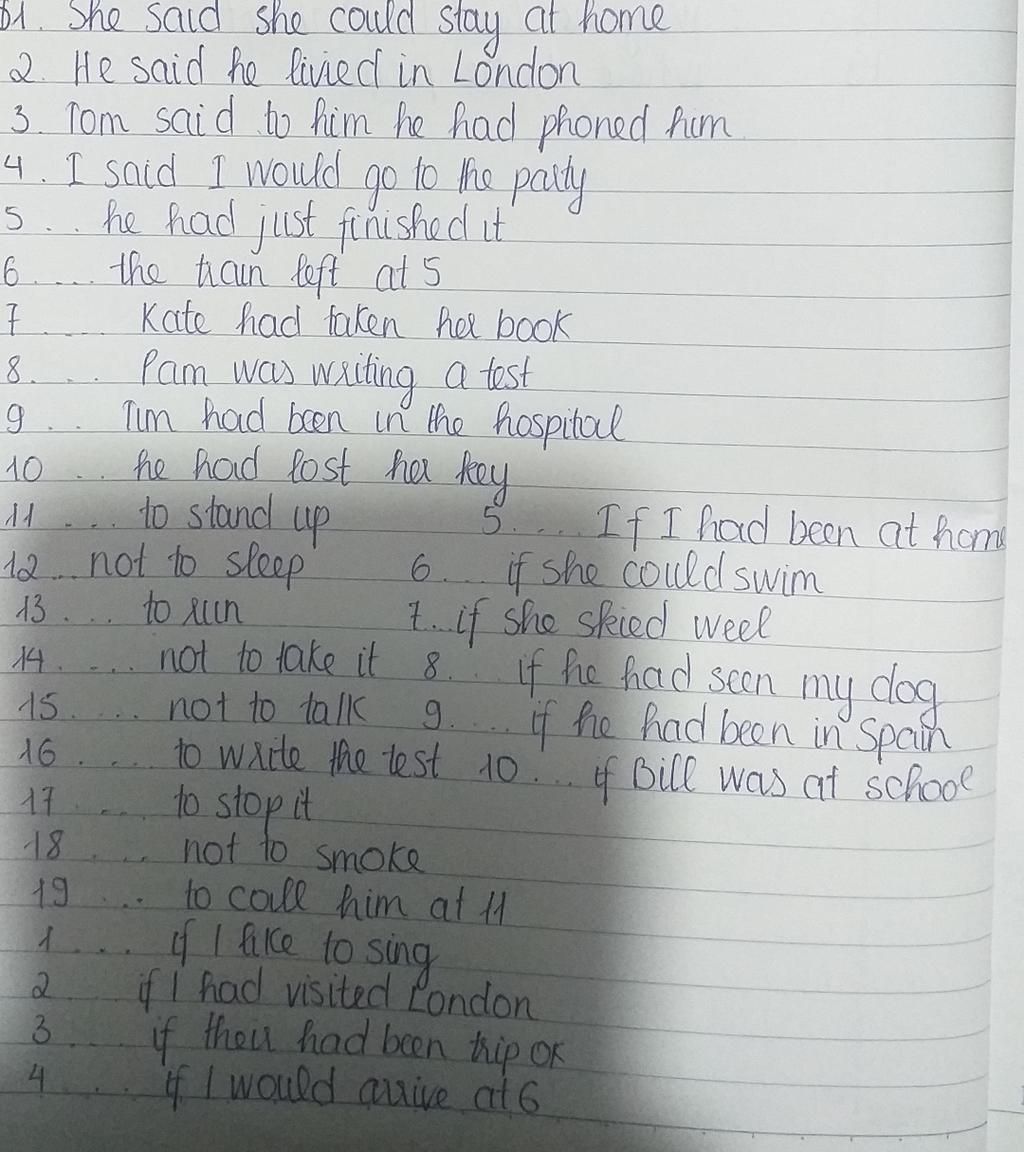 1. She said she could stay at home
2. He said he livied in London
3. Tom said to him he had phoned him
4. I said I would go to the party
5 .. he had just finished it
6 .... the train left at 5
7 .... Kate had taken her book
8. ... Pam was writing a test
9 .. Tim had been in the hospital
10 .. he had lost her key
11 .... to stand up 5 .... If I had been at home
12 ... not to sleep 6 ... if she could swim
13 .... to run 7 .. if she skied weel
14 .... not to take it 8 ... if he had seen my dog
15 .... not to talk 9 .... if he had been in Spain
16 .... to write the test 10 ... if Bill was at school
17 .... to stop it
18 .... not to smoke
19 ... to call him at 11
1 .... if I like to sing
2 ... if I had visited London
3 .... if their had been trip OK
4 .... if I would arrive at 6